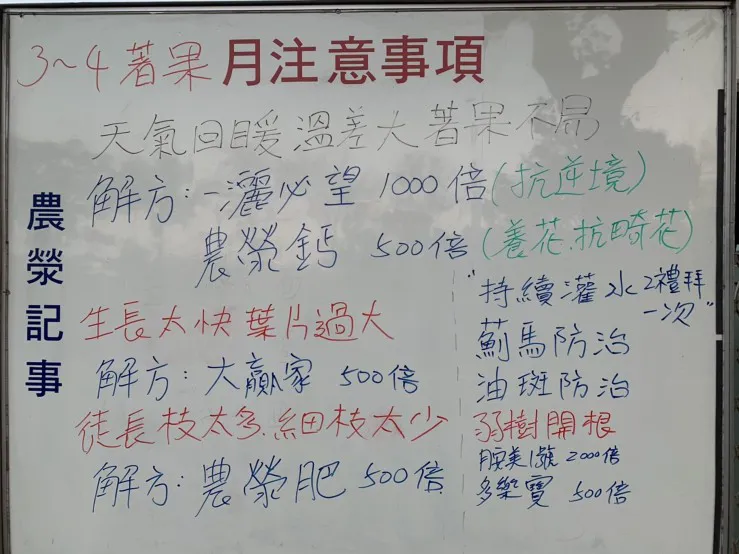 3~4著果月注意事項
農滎記事
天氣回暖溫差大著果不易
解方:一灑必望 1000倍(抗逆境)
農滎鈣 500倍(養花.抗畸花)
生長太快葉片過大
解方:大贏家 500倍
徒長枝太多.細枝太少
解方:農滎肥 500倍
"持續灌水2禮拜一次"
薊馬防治
油斑防治
弱樹開根
胺美1號 2000倍
多樂寶 500倍